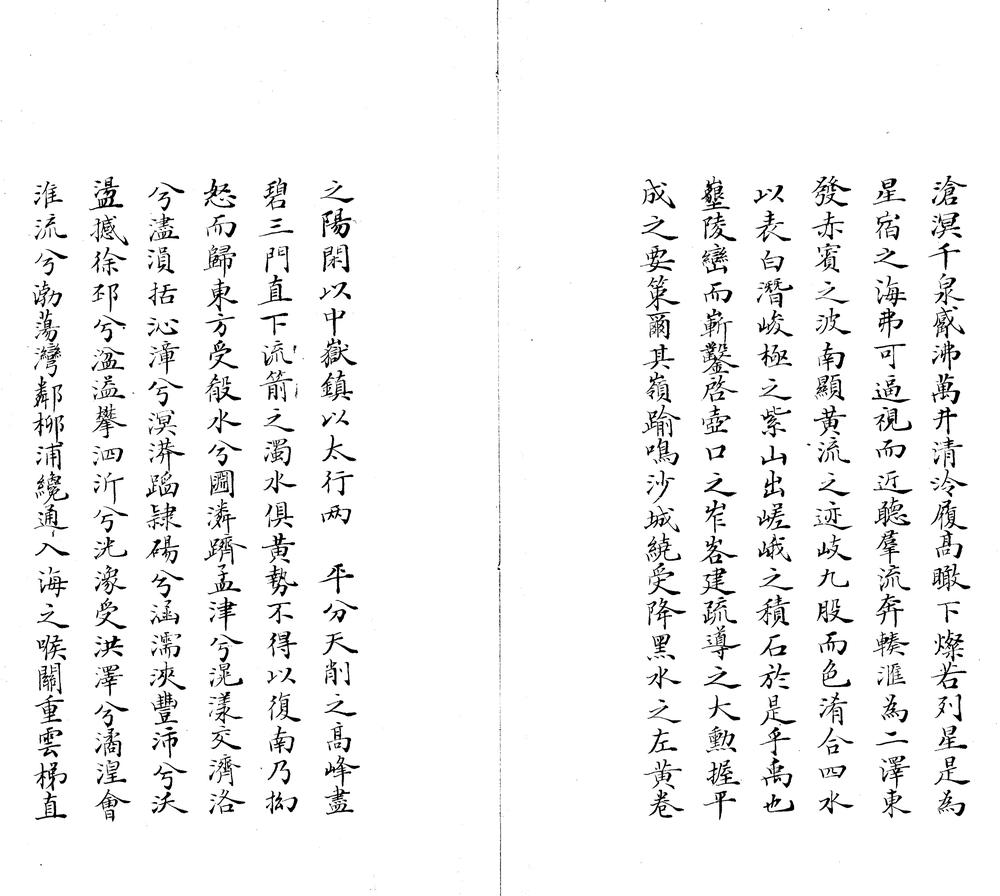 滄溟千泉觱沸萬井清泠履高瞰下燦若列星是為
星宿之海弗可逼視而近聽羣流奔輳滙為二澤東
發赤賓之波南顯黃流之迹岐九股而色淆合四水
以表白潛峻極之紫山出嵯峨之積石於是乎禹也
壑陵巒而嶄鑿啓壺口之岝峉建疏導之大勲握平
成之要策爾其嶺踰鳴沙城繞受降黑水之左黃卷
之陽閑以中嶽鎮以太行兩 平分天削之高峰盡
碧三門直下流箭之濁水俱黃勢不得以復南乃拗
怒而歸東方受殽水兮圓潾躋孟津兮滉漾交濟洛
兮濜溳括沁漳兮溟漭蹈隷碭兮涵濡浹豐沛兮沃
盪撼徐邳兮湓溢攀泗沂兮洸潒受洪澤兮潏湟會
淮流兮渤蕩灣鄰柳浦繞通入海之喉關重雲梯直